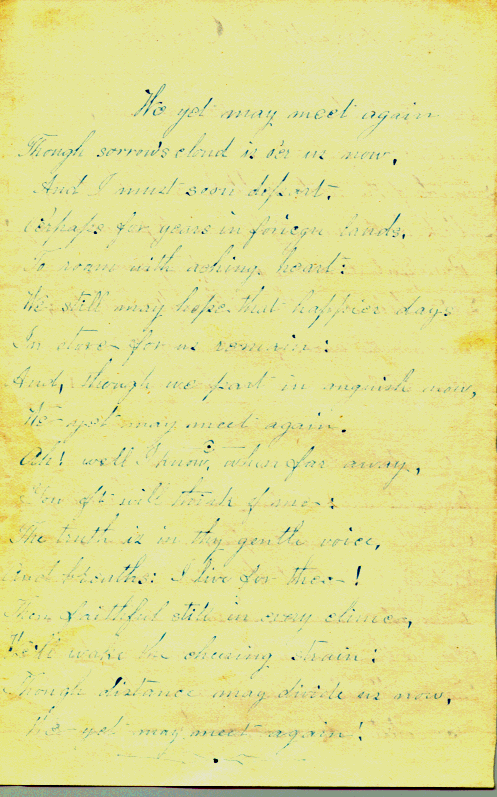 We yet may meet again
Though sorrow's cloud is o'er us now,
And I must soon depart.
Perhaps for years in foriegn lands,
To roam with aching heart:
We still may hope that happier days
In store for us remain:
And, though we part in anguish now,
We yet may meet again.
Ah! well I know, when far away,
You oft will think of me:
The truth is in thy gentle voice,
And breathes I live for thee!
Then faithful still in every clime,
We'll wake the cheering strain:
Though distance may divide us now,
We yet may meet again!